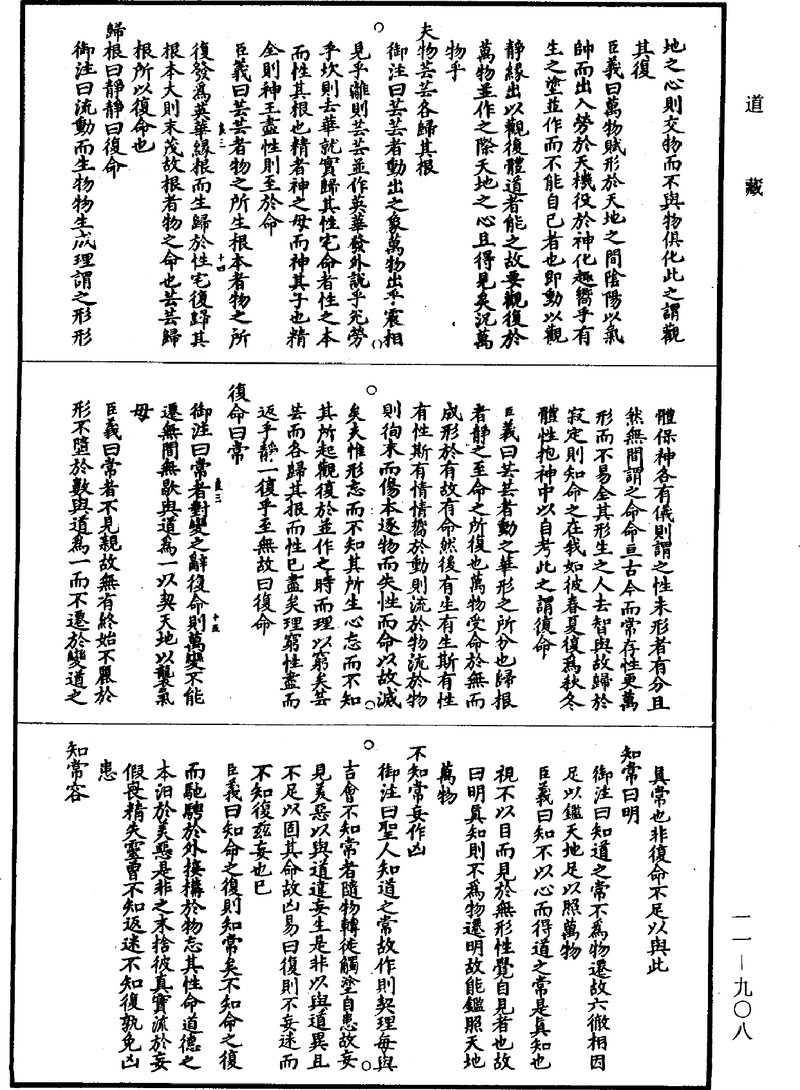 道藏
地之心則交物而不與物俱化此之謂觀
其復
臣義曰萬物賦形於天地之間陰陽以氣
帥而出入勞於天機役於神化趣嚮乎有
生之塗並作而不能自已者也即動以觀
靜緣出以觀復體道者能之故要觀復於
萬物並作之際天地之心且得見矣況萬
物乎
夫物芸芸各歸其根
御注曰芸芸者動出之象萬物出乎震相
見乎離則芸芸並作英華發外說乎兊勞
乎坎則去華就實歸其性宅命者性之本
而性其根也精者神之母而神其子也精
全則神王盡性則至於命
臣義曰芸芸者物之所生根本者物之所
復發為英華緣根而生歸於性宅復歸其
根本大則末茂故根者物之命也芸芸歸
根所以復命也
歸根曰靜靜曰復命
御注曰流動而生物物生成理謂之形形
體保神各有儀則謂之性未形者有分且
然無間謂之命命亘古今而常存性更萬
形而不易全其形生之人去智與故歸於
寂定則知命之在我如彼春夏復為秋冬
體性抱神中以自考此之謂復命
臣義曰芸芸者動之華形之所分也歸根
者靜之至命之所復也萬物受命於無而
成形於有故有命然後有生有生斯有性
有性斯有情情嚮於動則流於物流於物
則徇末而傷本逐物而失性而命以故滅
矣夫惟形忘而不知其所生心忘而不知
其所起觀復於並作之時而理以窮矣芸
芸而各歸其根而性已盡矣理窮性盡而
返乎靜一復乎至無故曰復命
復命曰常
御注曰常者對變之辭復命則萬變不能
遷無間無歇與道為一以契天地以襲氣
母
臣義曰常者不見親故無有終始不麗於
形不隨於數與道為一而不遷於變道之
真常也非復命不足以與此
知常曰明
御注曰知道之常不為物遷故六徹相因
足以鑑天地足以照萬物
臣義曰知不以心而得道之常是真知也
視不以目而見於無形性覺自見者也故
曰明真知則不為物遷明故能鑑照天地
萬物
不知常妄作凶
御注曰聖人知道之常故作則契理每與
吉會不知常者隨物轉徙觸塗自患故妄
見美惡以與道違妄生是非以與道異且
不足以固其命故凶易曰復則不妄迷而
不知復茲妄也已
臣義曰知命之復則知常矣不知命之復
而馳騁於外接構於物忘其性命道德之
本汨於美惡是非之末捨彼真實流於妄
假喪精失靈曾不知返迷不知復孰免凶
患
知常容
一一—九〇八